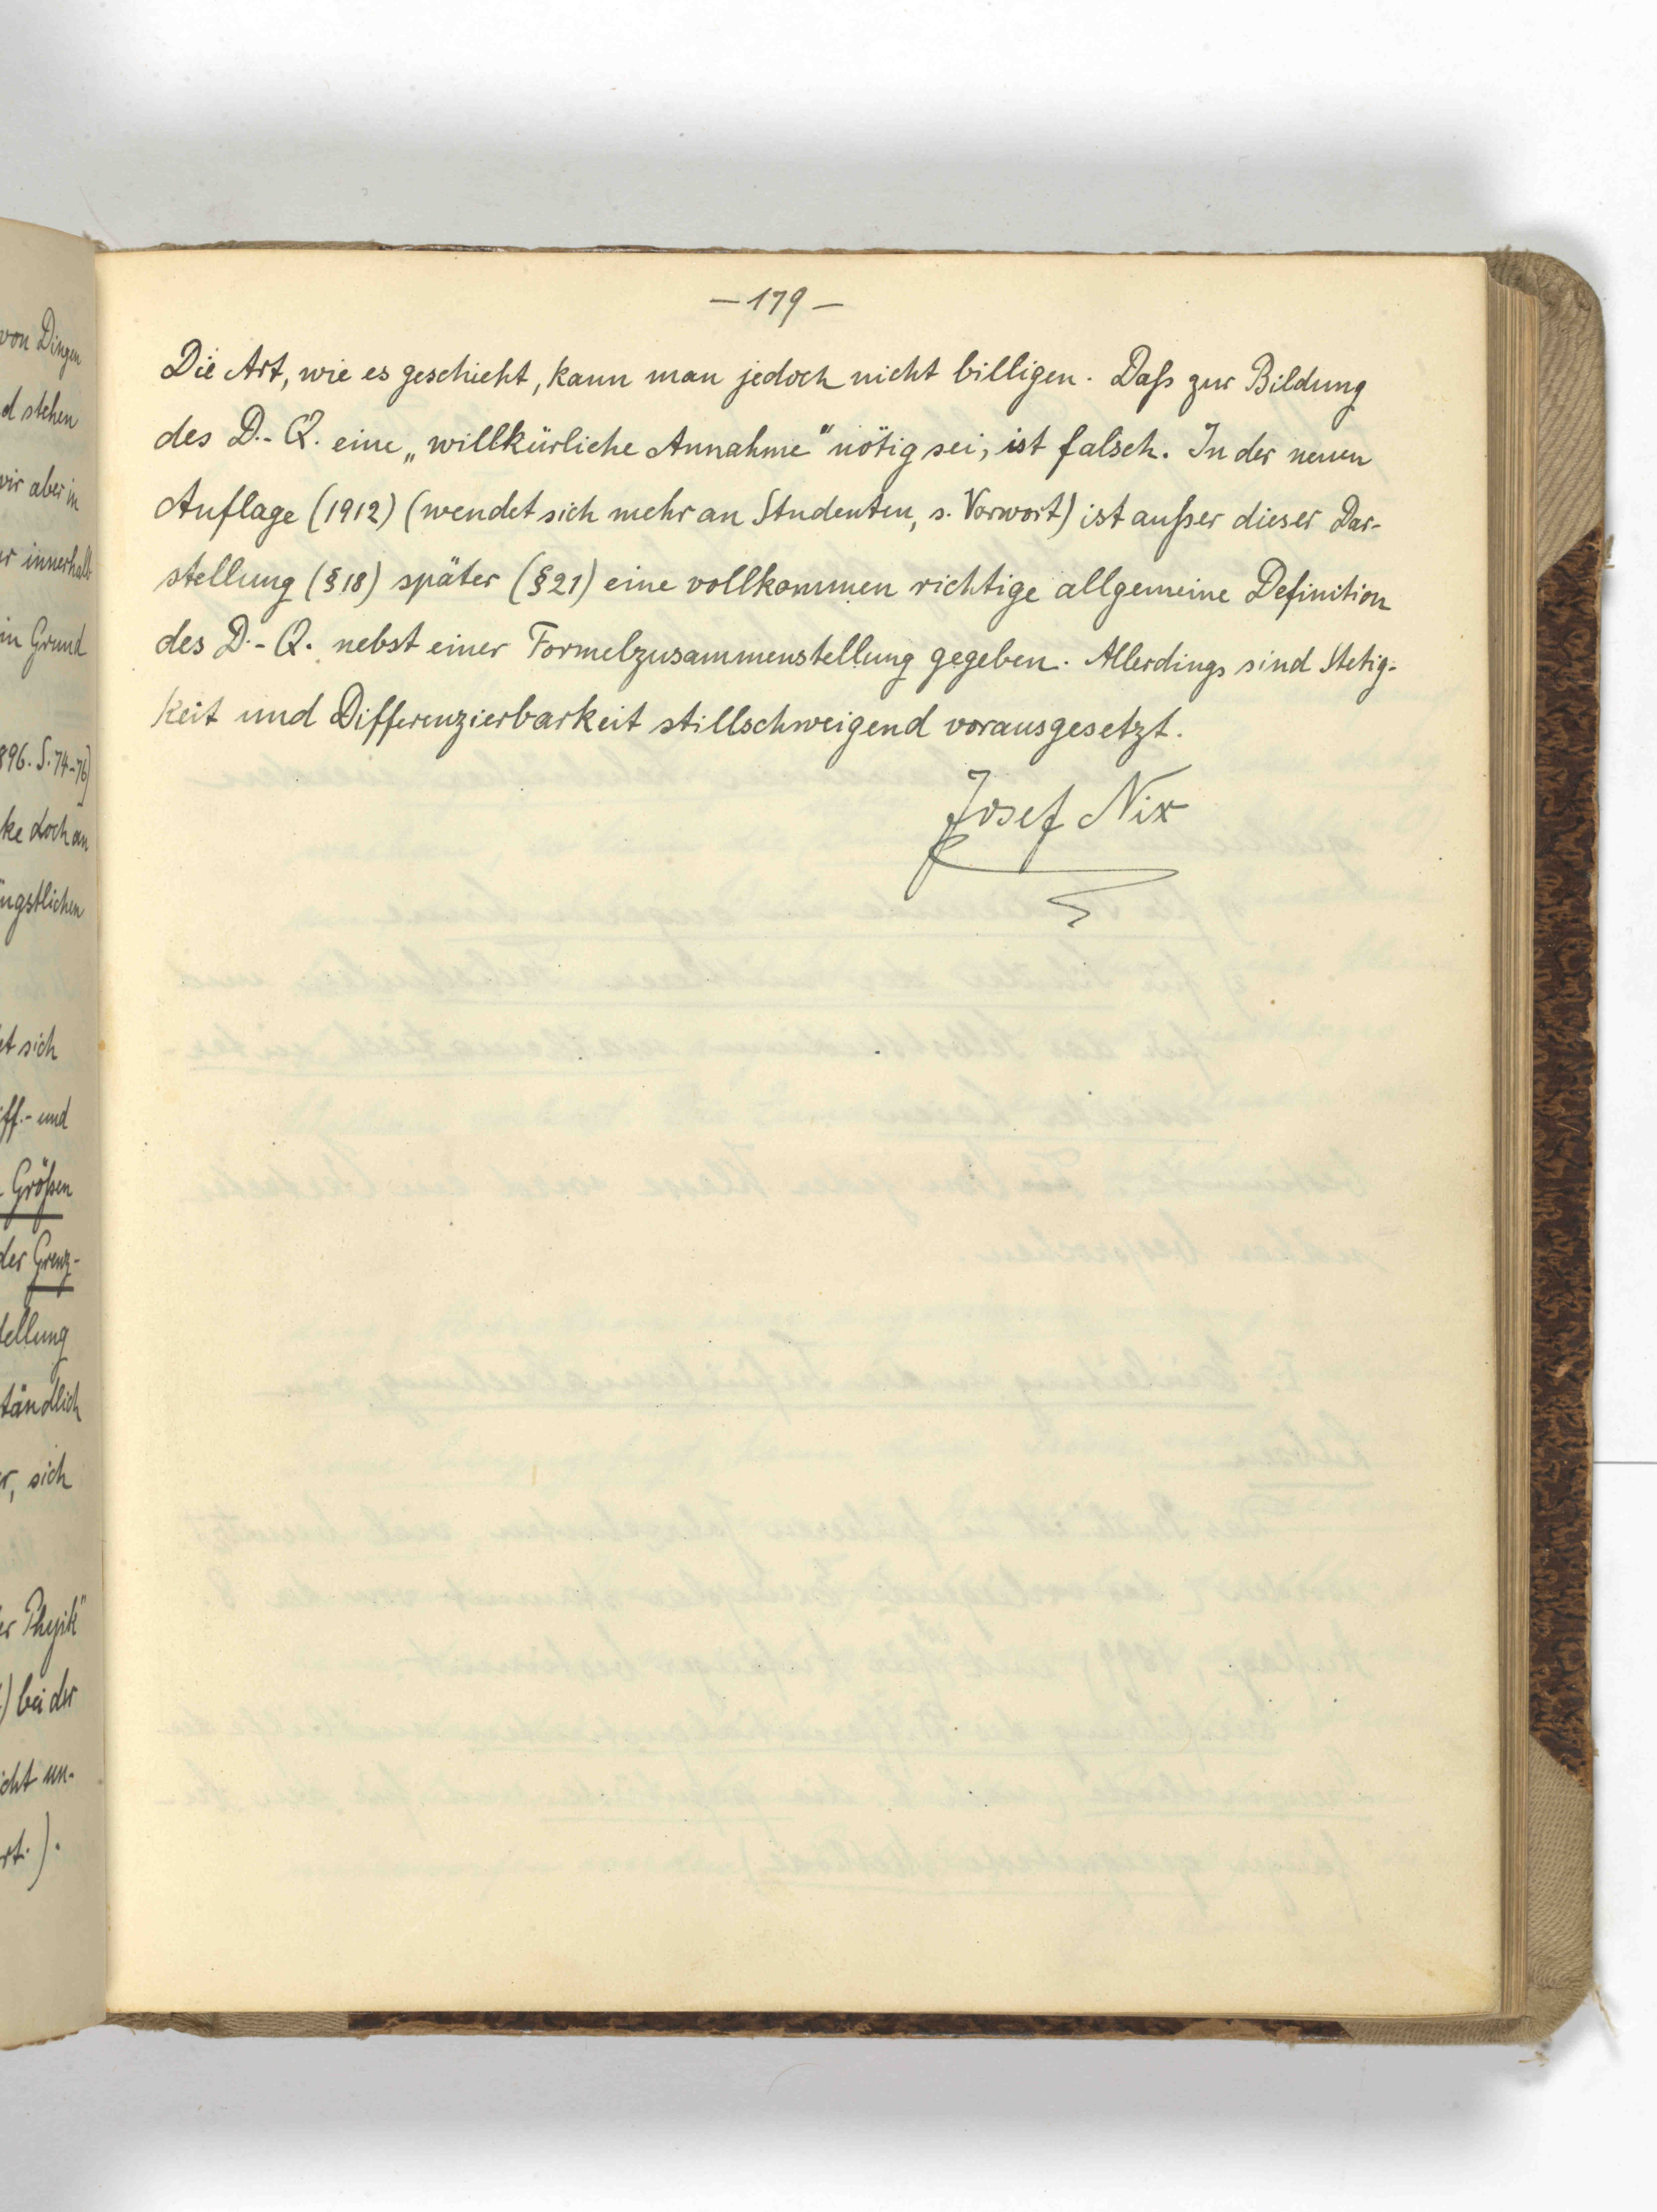 von Dingen
d stehen
wir aber in
er innerhalb
in Grund
896. S. 74-76)
ke doch an
ngstlichen
et sich
iff.- und
Größen
der Grenz-
tellung
tändlich
r, sich
er Physik"
) bei der
icht un-
rt.).
— 179 —
Die Art, wie es geschieht, kann man jedoch nicht billigen. Daß zur Bildung
des D.-Q. eine „willkürliche Annahme" nötig sei, ist falsch. In der neuen
Auflage (1912) (wendet sich mehr an Studenten, s. Vorwort) ist außer dieser Dar-
stellung (§ 18) später (§ 21) eine vollkommen richtige allgemeine Definition
des D.-Q. nebst einer Formelzusammenstellung gegeben. Allerdings sind Stetig-
keit und Differenzierbarkeit stillschweigend vorausgesetzt.
Josef Nix